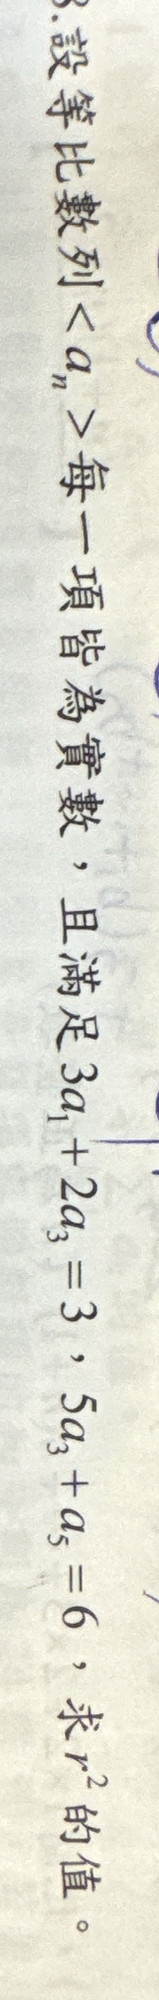 3.設等比數列<aₙ>每一項皆為實數,且滿足3a₁+2a₃=3,5a₃+a₅=6,求r²的值。